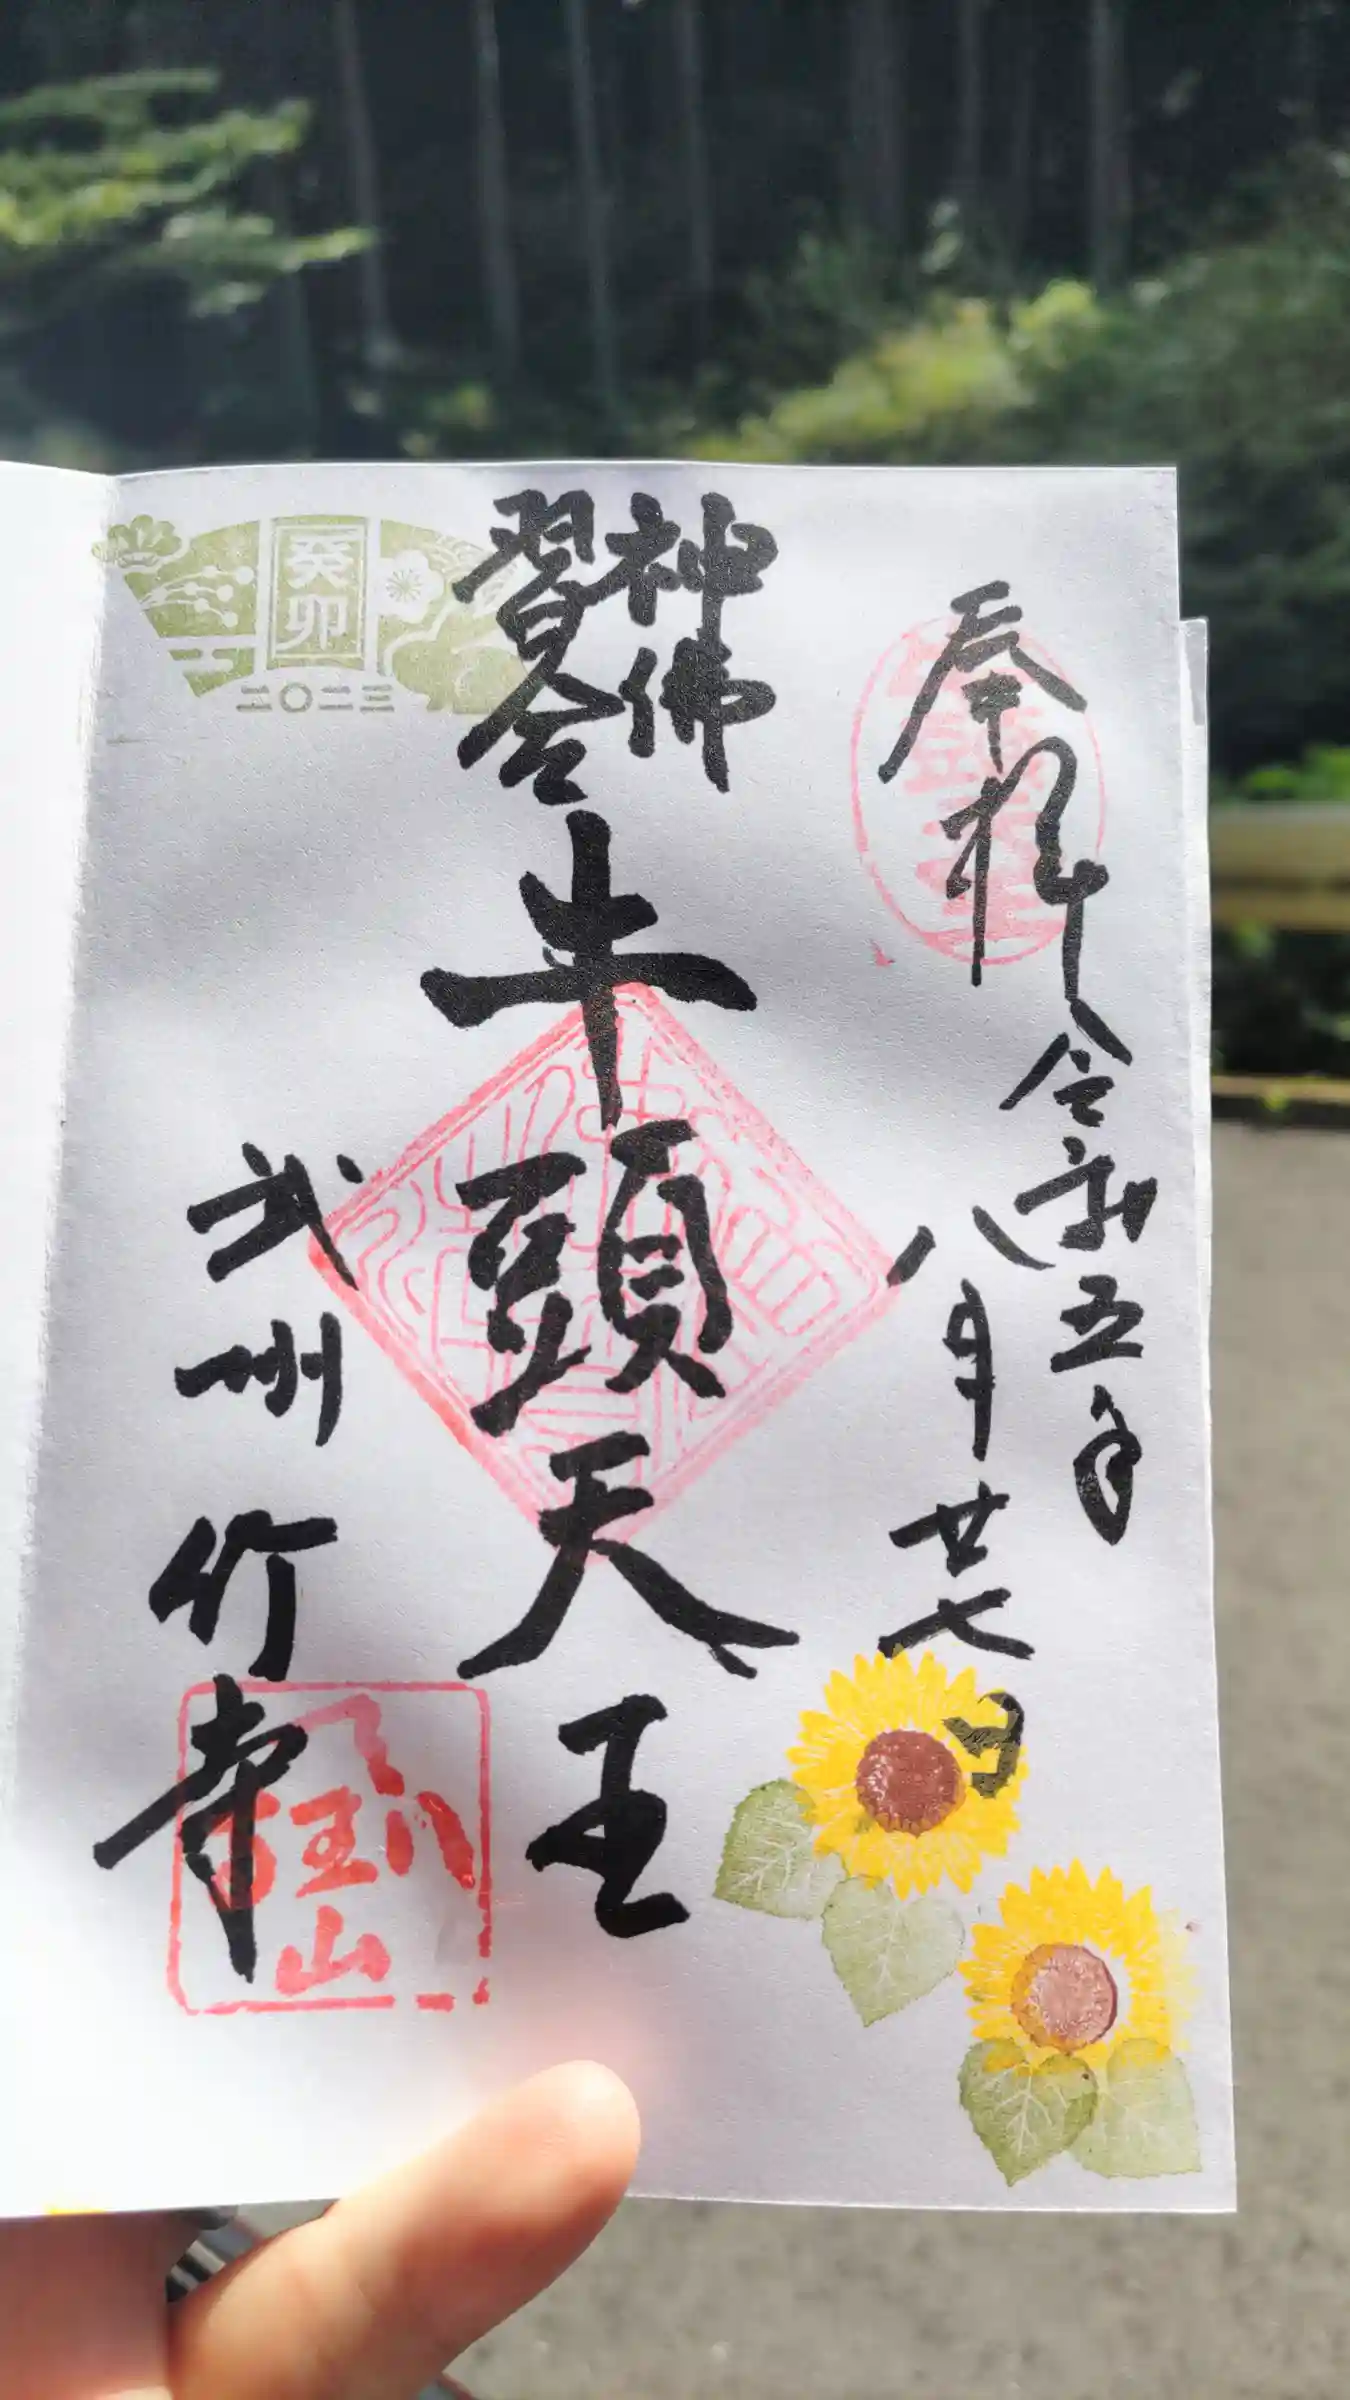 奉拝
令和五年
八月廿七日
神佛
習合
牛頭天王
武州竹寺
癸卯
二〇二三
八王山